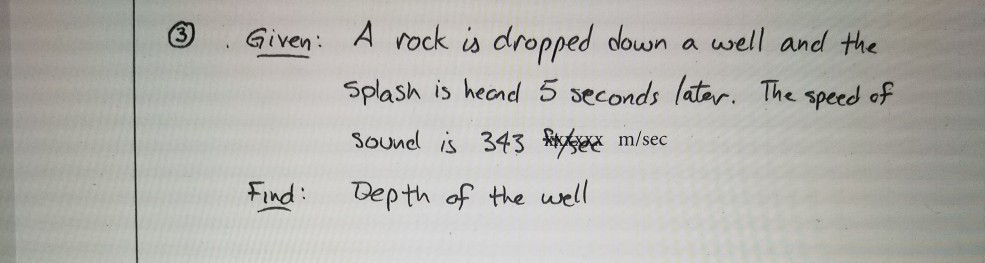 ③ . Given: A rock is dropped down a well and the
splash is heard 5 seconds later. The speed of
sound is 343 m/sec
Find: Depth of the well